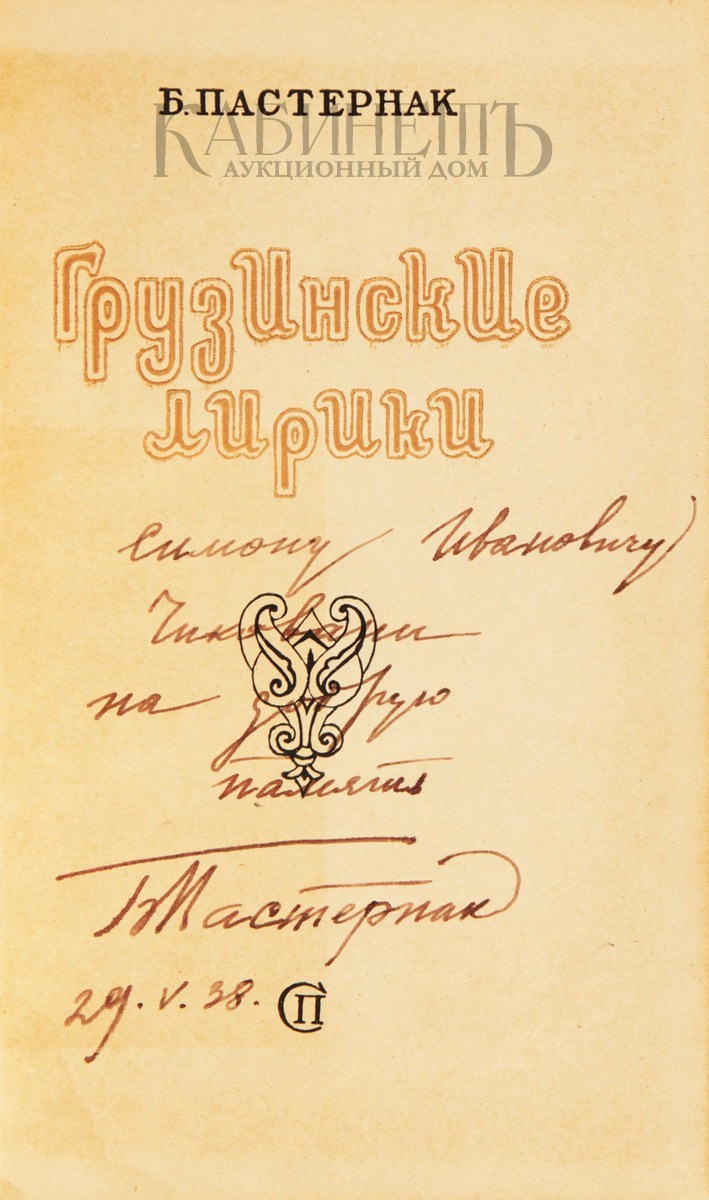 Б. ПАСТЕРНАК
КАБИНЕТЪ
АУКЦИОННЫЙ ДОМ
Грузинские
лирики
Симону Ивановичу
Чиковани
на добрую
память
БПастернак
29. V. 38.
СП